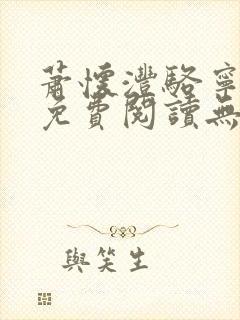 蕭懷灃駱寧
免費閱讀無
與笑生